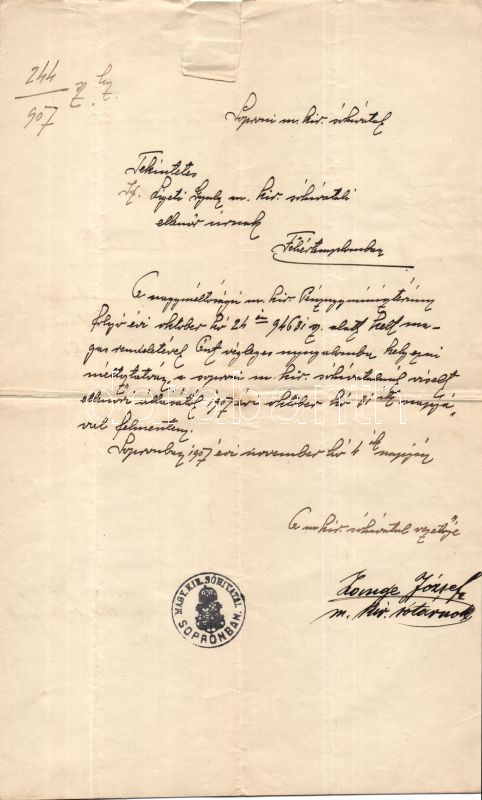 244
907
Soproni m. kir. sóhivatal
Tekintetes
Ligeti Gyula m. kir. sóhivatali
ellenőr úrnak
Fehértemplomban
A nagyméltóságú m. kir Pénzügyminisztérium
folyó évi október hó 24 én 94681 sz. alatt kelt ma-
gas rendeletével Önt végleges nyugalomba helyezni
méltóztatván, a soproni m. kir. sóhivatalnál viselt
ellenőri állásától 1907 évi október hó 31 napjá-
val felmentem.
Sopronban 1907 évi november hó 4 napján
A m. kir. sóhivatal vezetője
Zonge József
m. kir. sótárnok
MAGY. KIR. SÓHIVATAL
SOPRONBAN.